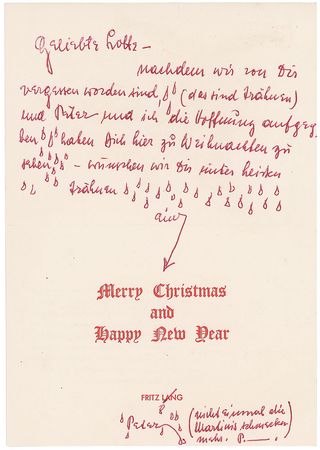 Geliebte Lotte –
nachdem wir von Dir
vergessen worden sind, (das sind Trähnen)
und Peter und ich die Hoffnung aufgege
ben haben Dich hier zu Weihnachten zu
sehen, – wünschen wir Dir unter heissen
Trähnen
ein
Merry Christmas
and
Happy New Year
FRITZ LANG
Peter (nicht einmal die
Martinis schmecken
mehr. P.—.)